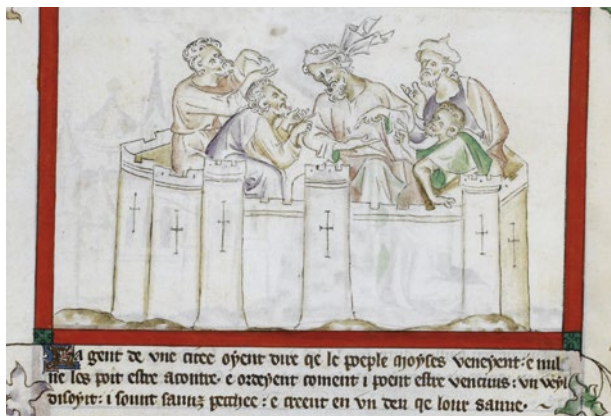 La gent de une citee oyent dire qe le poeple moyses veneyent · e nul
ne les poit estre acontre · e ordeyent coment i poent estre vencius : un veyl
disoyt : i sount sauuz pecchee : e creent en vn deu qe lour sauue ·